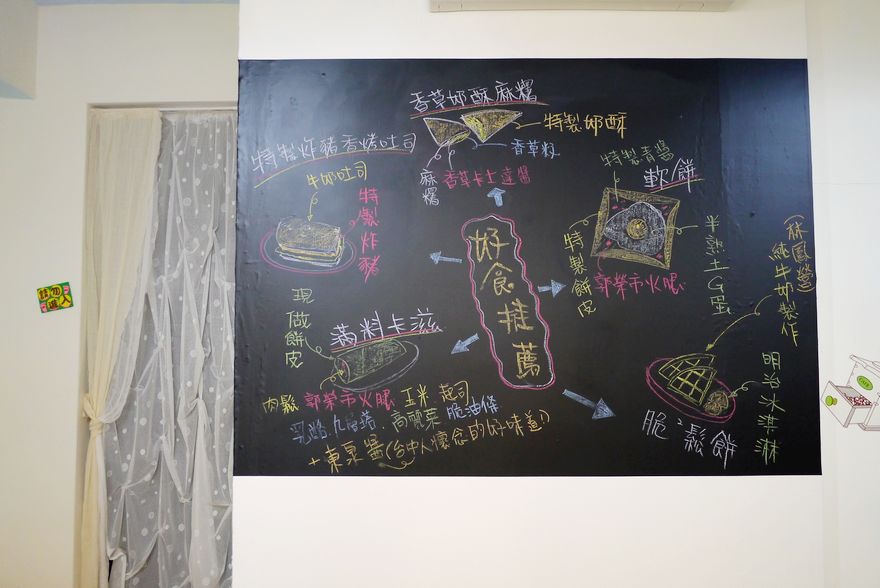 香草奶酥麻糬
特製奶酥
香草籽
香草卡士達醬
麻糬
特製炸豬香烤吐司
牛奶吐司
特製炸豬
好食推薦
特製青醬
軟餅
特製餅皮
郭榮市火腿
半熟土G蛋
滿料卡滋
現做餅皮
肉鬆 郭榮市火腿 玉米 起司
乳酪 九層塔、高麗菜 脆油條
+東泉醬(台中人懷念的好味道!)
(林鳳營)
純牛奶製作
明治冰淇淋
脆²鬆餅
請勿